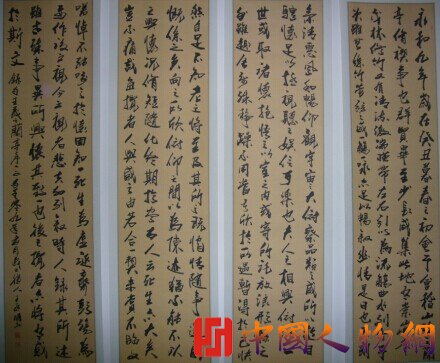 永和九年歲在癸丑暮春之初會于會稽山
亭脩禊事也群賢畢至少長咸集此地有崇
茂林脩竹又有清流激湍映帶左右引以為流觴曲水列坐
其次雖無絲竹管弦之盛一觴一詠亦足以暢敘幽情是日也
氣清惠風和暢仰觀宇宙之大俯察品類之盛所以
騁懷足以極視聽之娛信可樂也夫人之相與俯仰
世或取諸懷抱悟言一室之內或寄所託放浪形骸
外雖趣舍萬殊靜躁不同當其欣於所遇暫得
然自足不知老之將至及其所之既惓情隨事遷
慨係之矣向之所欣俯仰之間以為陳迹猶不能不以
之興懷況脩短隨化終期於盡古人云死生亦大矣
豈不痛哉每攬昔人興感之由若合一契未嘗不臨文
嗟悼不能喻之於懷固知一死生為虛誕齊彭殤為
妄作後之視今亦由今之視昔悲夫故列敘時人錄其所述
雖世殊事異所以興懷其致一也後之攬者亦將有感
於斯文 錄王羲之蘭亭序
中國人物網